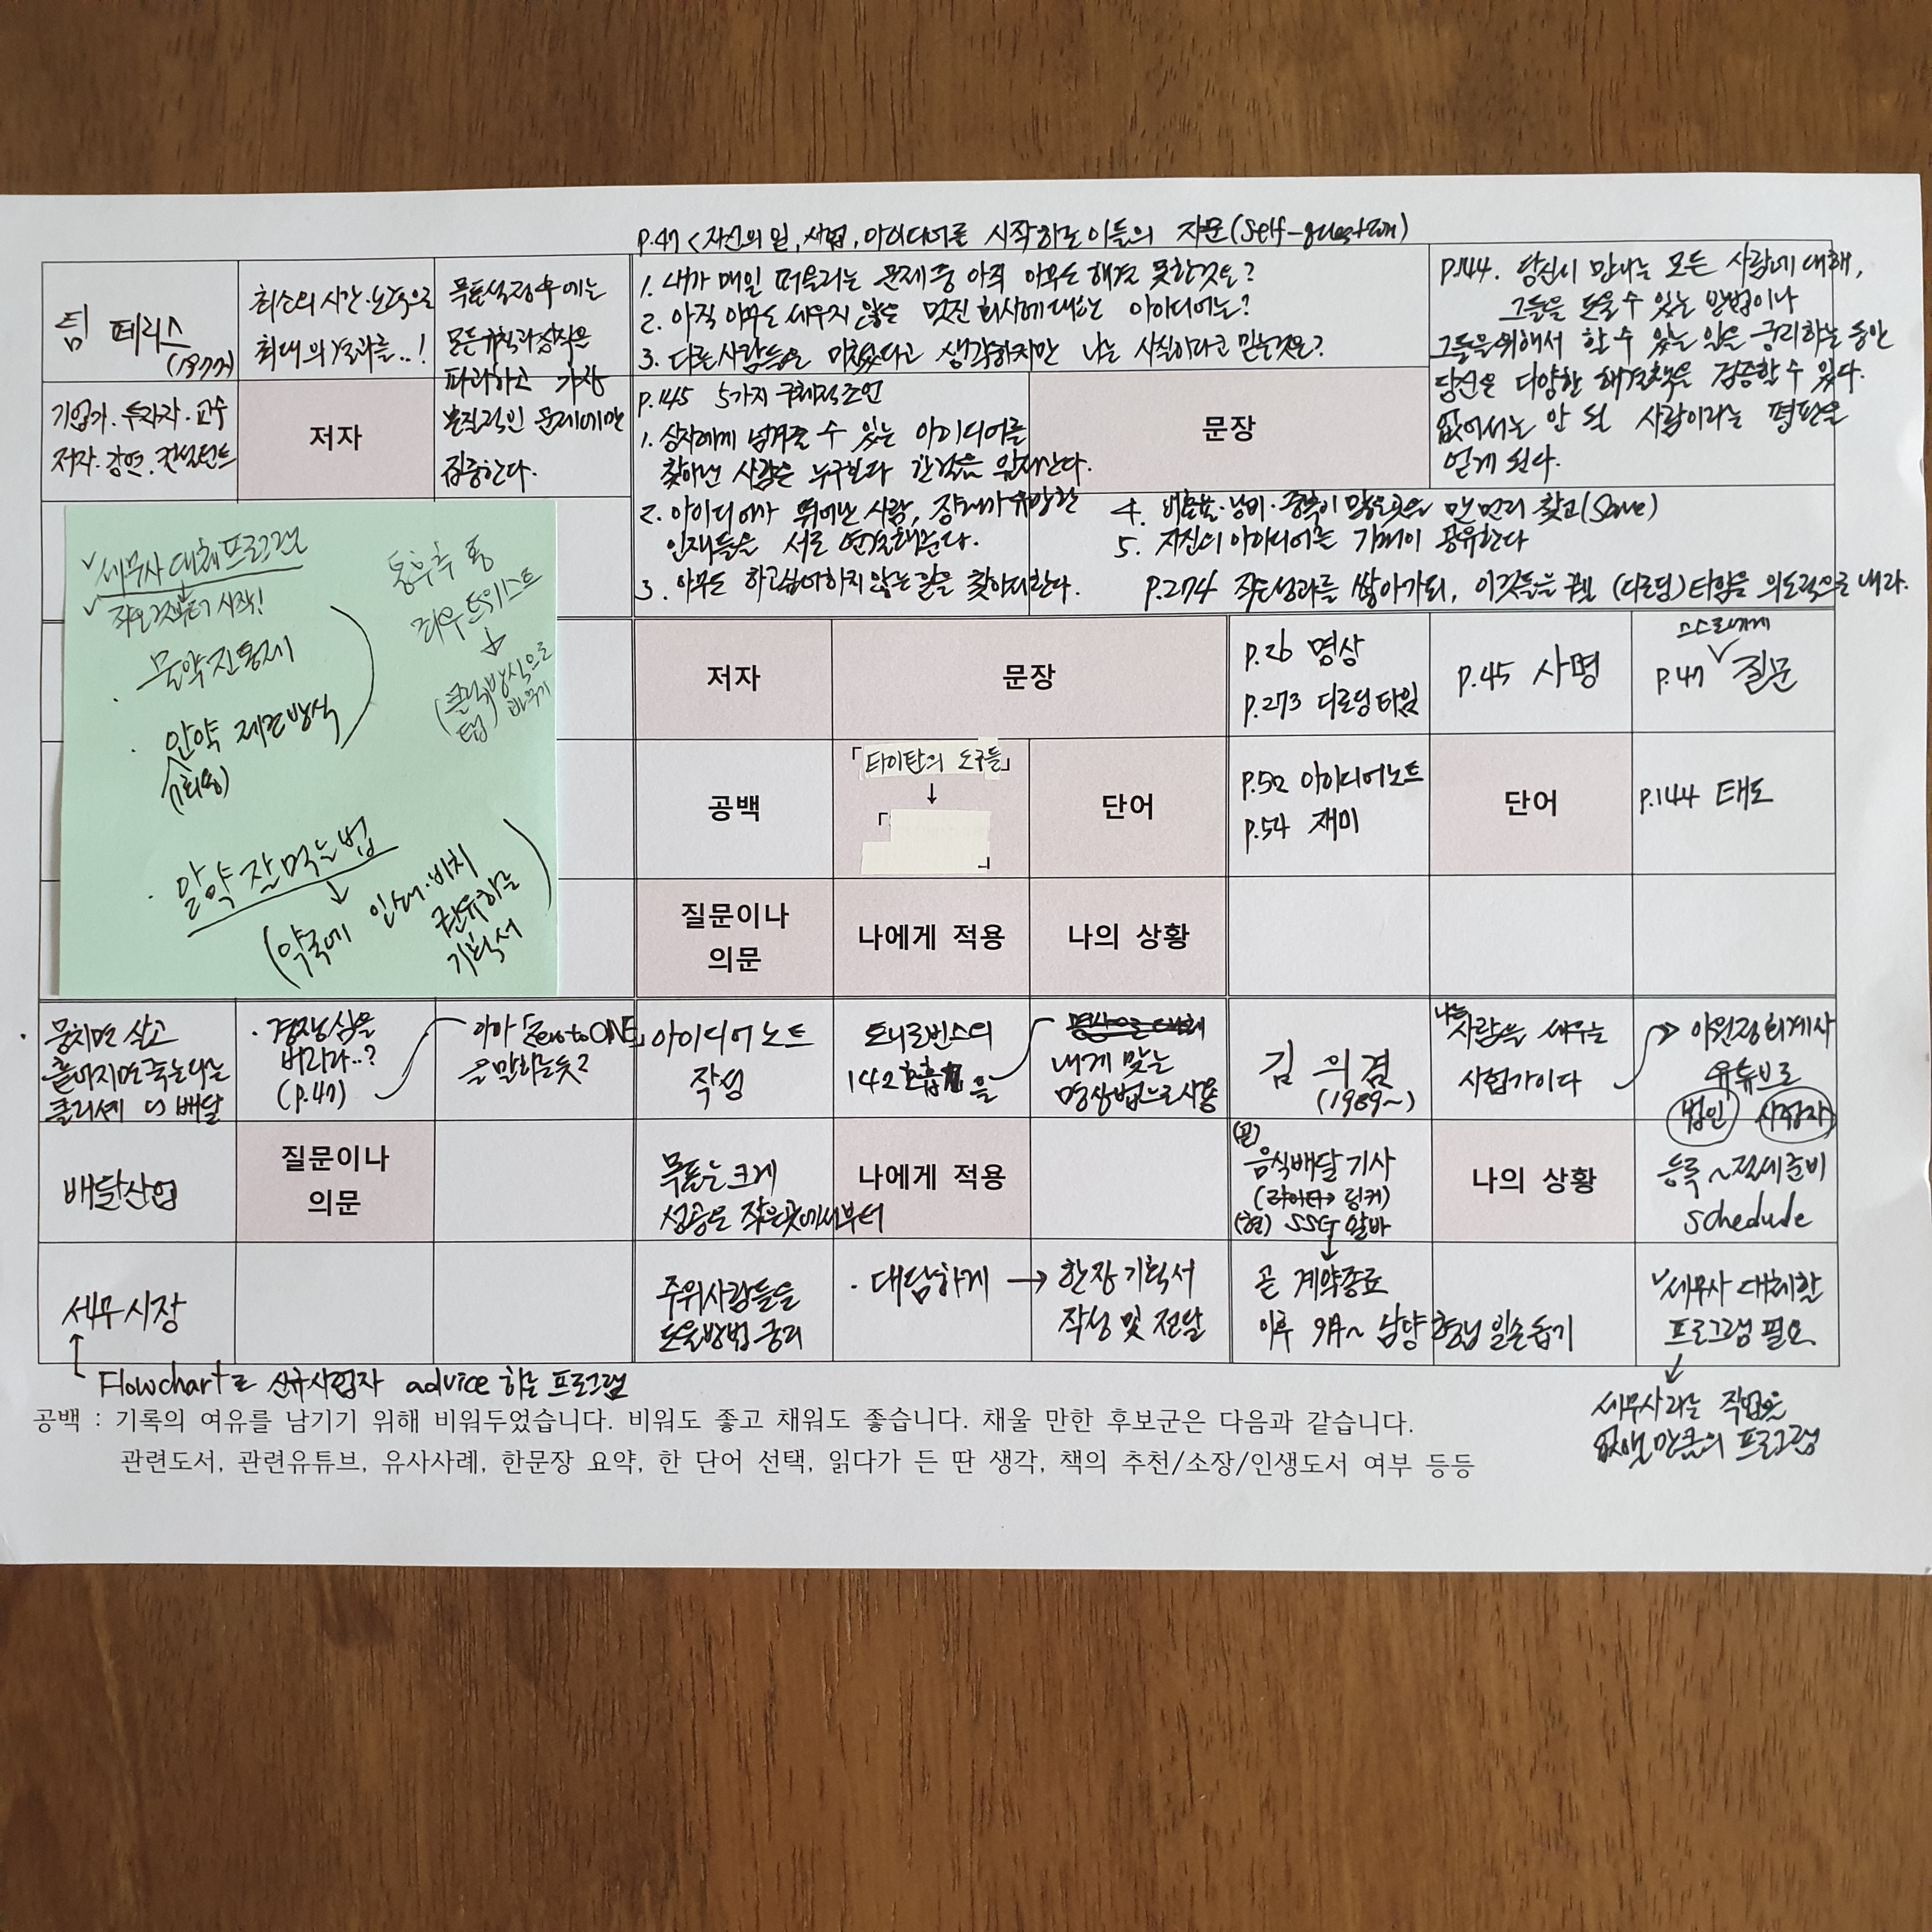 P.47 < 자신의 일, 사업, 아이디어를 시작하는 이들의 자문(Self-question)
팀 페리스
(1977)
최소의 시간·노력으로
최대의 결과를..!
목표설정 후에는
모든 규칙과 상식은
파괴하고 가장
본질적인 문제에만
집중한다.
기업가·투자자·교수
저자·강연·컨설턴트
저자
1. 내가 매일 떠올리는 문제 중 아직 아무도 해결 못한것은?
2. 아직 아무도 세우지 않은 멋진 회사에 대한 아이디어는?
3. 다른사람들은 미쳤다고 생각하지만 나는 사실이라고 믿는것은?
P.145 5가지 구체적 조언
1. 상사에게 넘겨줄 수 있는 아이디어를
찾아낸 사람은 누구보다 한 걸음 앞서간다.
2. 아이디어가 뛰어난 사람, 장래가 유망한
인재들을 서로 연결해준다.
3. 아무도 하고싶어하지 않는 일을 찾아 한다.
문장
P.144. 당신이 만나는 모든 사람에 대해,
그들을 도울 수 있는 방법이나
그들을 위해서 할 수 있는 일을 궁리하는 동안
당신은 다양한 해결책을 검증할 수 있다.
없어서는 안 될 사람이라는 평판을
얻게 된다.
4. 비효율·낭비·중복이 많은곳을 맨 먼저 찾고(Save)
5. 자신의 아이디어는 기꺼이 공유한다
P.274 작은성과를 쌓아가되, 이것들을 꿸 (디로딩)타임을 의도적으로 내라.
세무사 대체 프로그램
작은것부터 시작!
물약 진통제
안약 제건방식
(1회용)
통후추 통
좌우 트위스트
↓
(클릭 방식으로
탭) 바꾸기
알약 잘 먹는 법
↓
(약국에 인쇄·비치
권유하는
기획서)
저자
문장
P.26 명상
P.273 디로딩타임
P.45 사명
스스로에게
P.47 질문
공백
「타이탄의 도구들」
↓
「
」
단어
P.52 아이디어노트
P.54 재미
단어
P.144 태도
질문이나
의문
나에게 적용
나의 상황
뭉치면 살고
흩어지면 죽는다는
클리셰 is 배달
· 경쟁심을
버리라..?
(P.47)
아마 「Zero to ONE」
을 말하는듯?
아이디어 노트
작성
토니로빈스의
142호흡 을
내게 맞는
명상법으로 사용
김 의 겸
(1989~)
나는
사람을 세우는
사업가이다
이원정 회계사
유튜브로
법인 사업자
배달산업
질문이나
의문
목표는 크게
성공은 작은곳에서부터
나에게 적용
(전)
음식배달기사
(라이더→링커)
(현) SSG 알바
↓
나의 상황
등록 ~ 절세 준비
schedule
세무시장
주위사람들을
도울방법 궁리
· 대담하게 →
한장 기획서
작성 및 전달
곧 계약종료
이후 9月~ 남양 형님 일손 돕기
세무사 대체할
프로그램 필요
↓
Flowchart로 신규사업자 advice 하는 프로그램
세무사라는 직업을
없앨 만큼의 프로그램
공백 : 기록의 여유를 남기기 위해 비워두었습니다. 비워도 좋고 채워도 좋습니다. 채울 만한 후보군은 다음과 같습니다.
관련도서, 관련유튜브, 유사사례, 한문장 요약, 한 단어 선택, 읽다가 든 딴 생각, 책의 추천/소장/인생도서 여부 등등